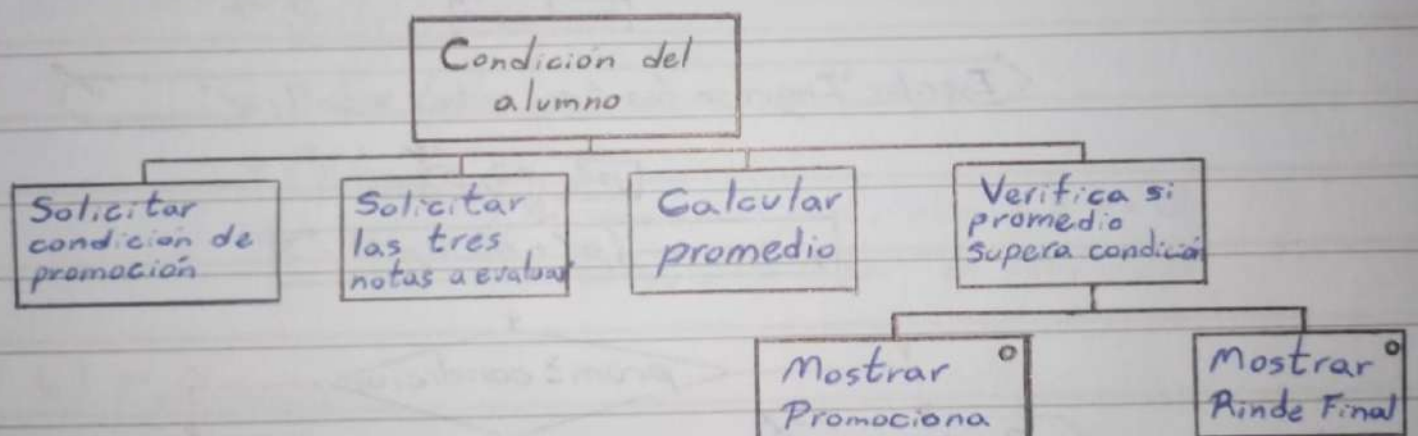 Condición del
alumno
Solicitar
condición de
promoción
Solicitar
las tres
notas a evaluar
Calcular
promedio
Verifica si
promedio
supera condición
Mostrar
Promociona
Mostrar
Rinde Final